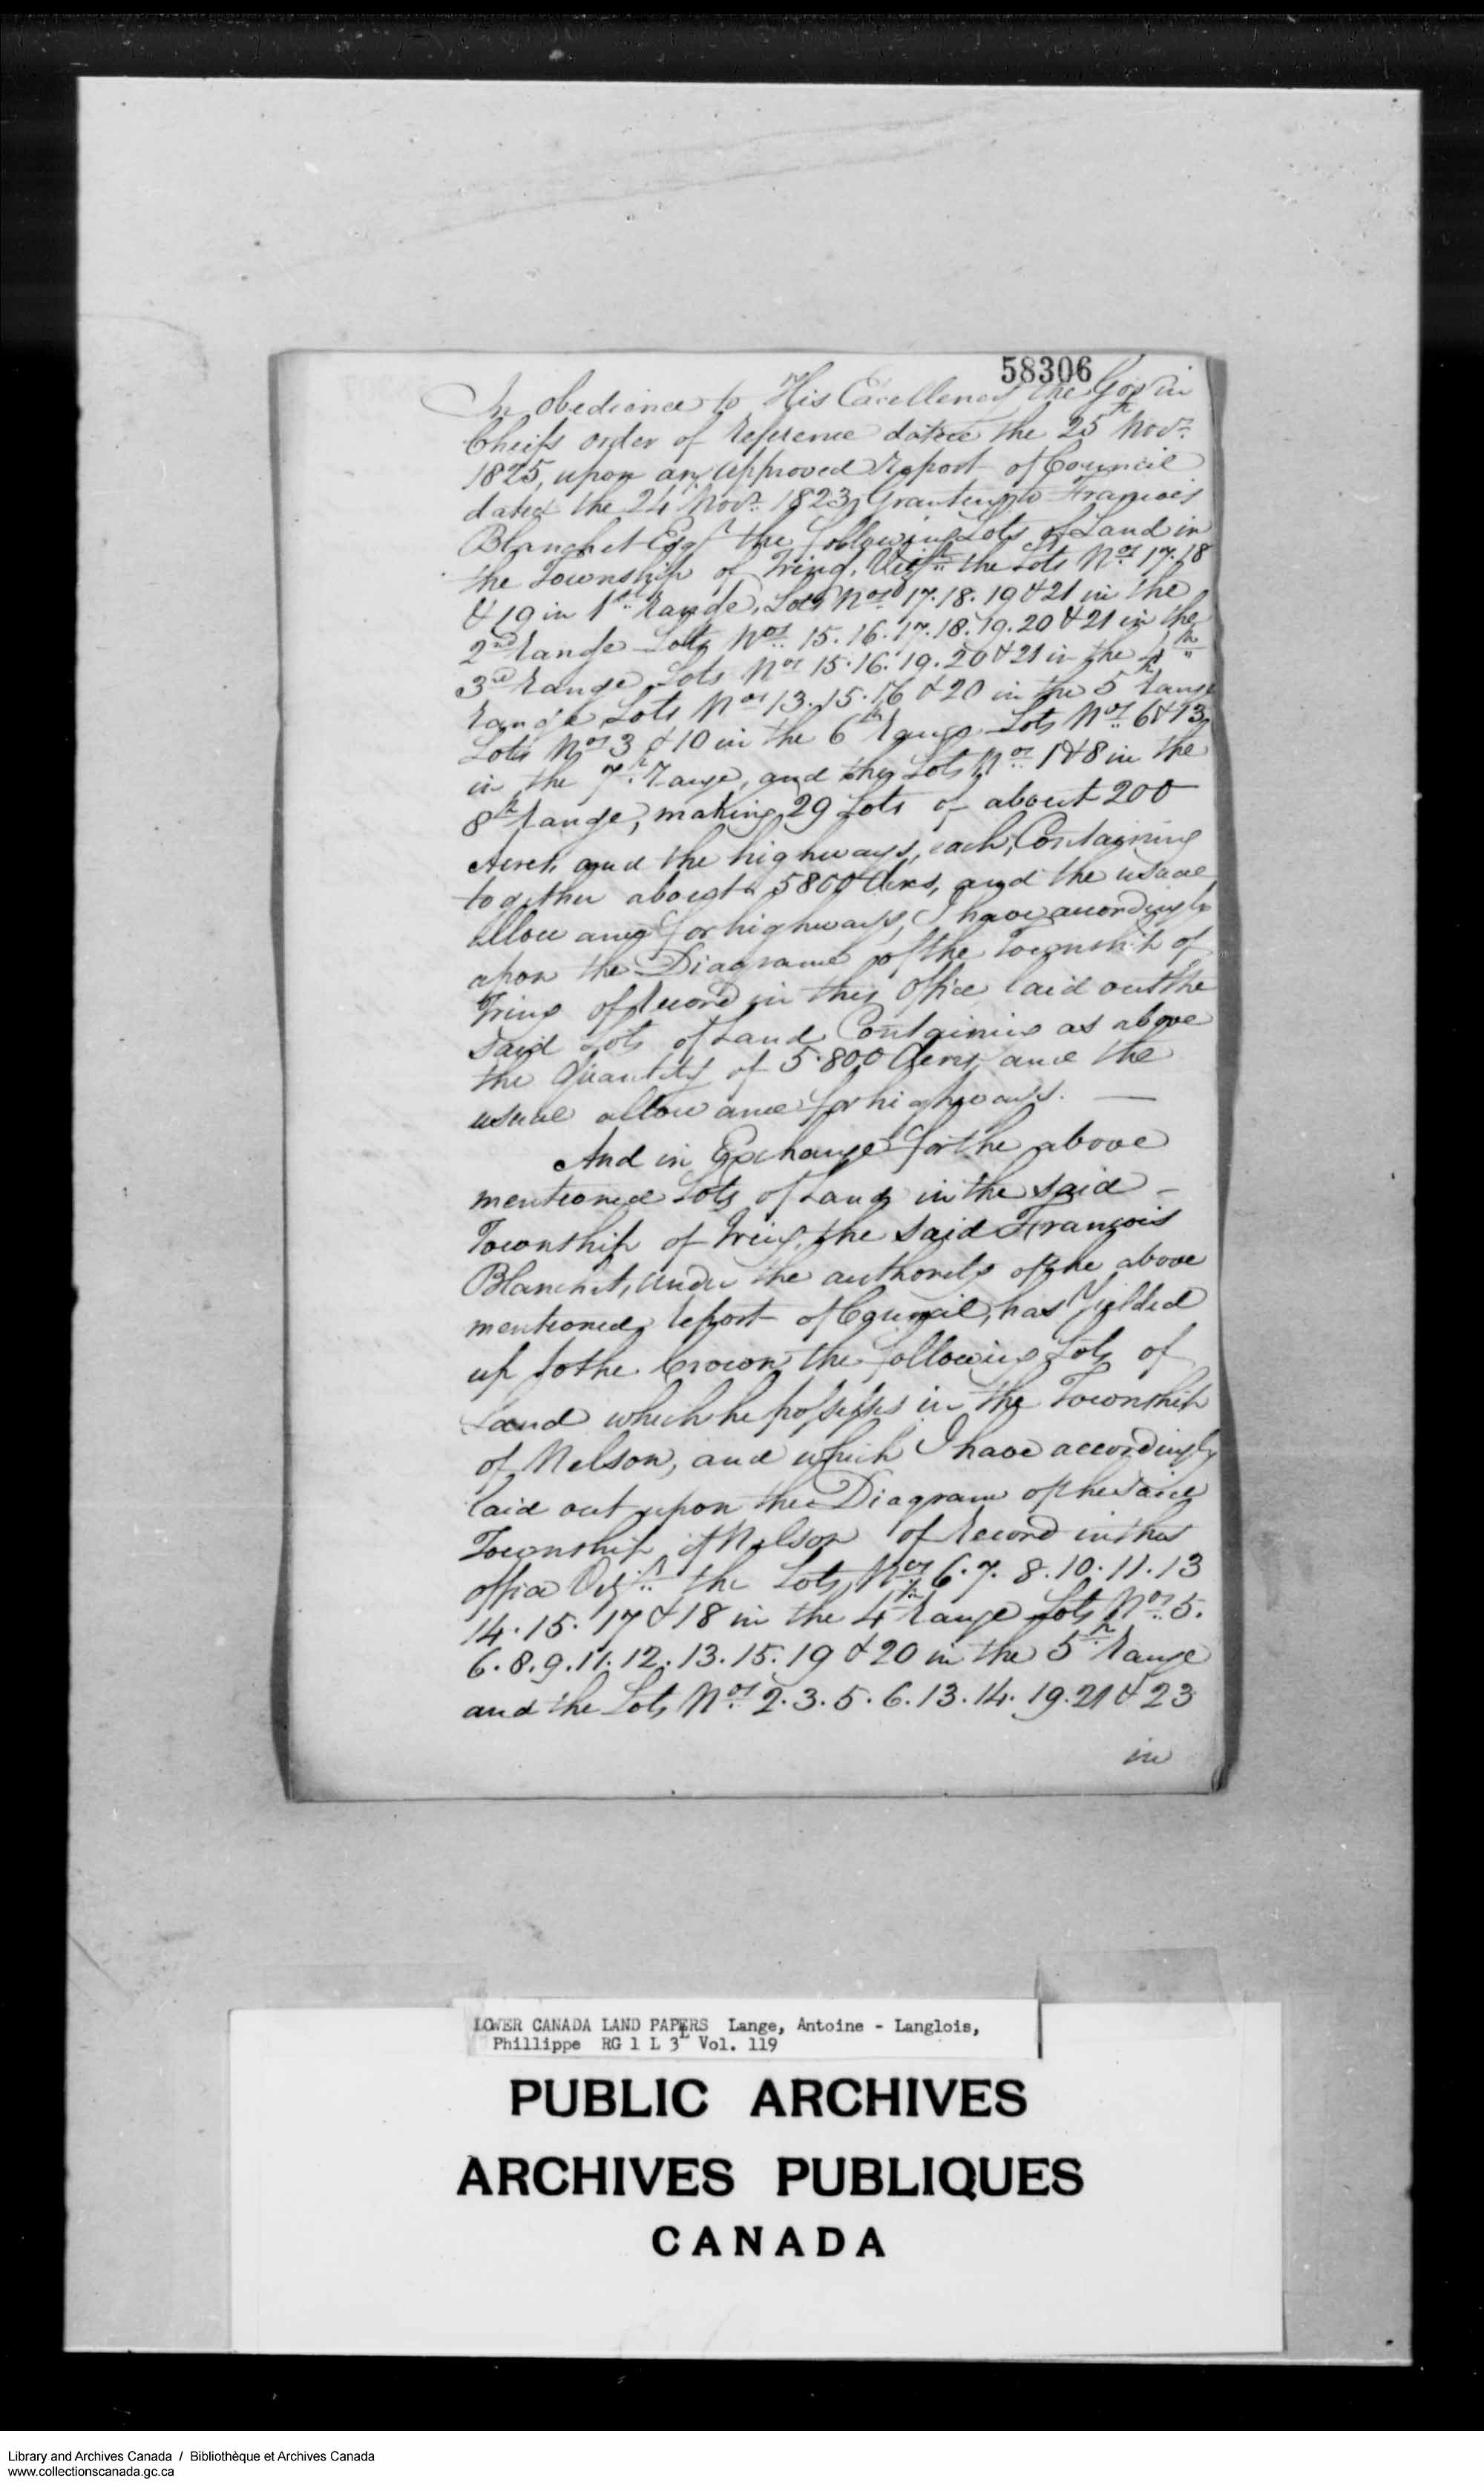 58306
In obedience to His Excellency the Govr in
Cheifs order of reference dated the 25th Novr.
1825, upon an approved report of Council
dated the 24 Novr. 1823, Granting to François
Blanchet Esqr the following Lots of Land in
the Township of Tring, Vizt: the Lots Nos 17.18
& 19 in 1st Range, Lots Nos 17.18.19 & 21 in the
2nd Range Lots Nos 15.16.17.18.19.20 & 21 in the
3rd Range Lots Nos 15.16.19.20 & 21 in the 4th
Range Lots Nos 13.15.16 & 20 in the 5th Range
Lots Nos 3 & 10 in the 6th Range Lots Nos 6 & 13
in the 7th Range, and the Lots Nos 1 & 8 in the
8th Range, making 29 Lots of about 200
Acres and the highways, each, Containing
together about 5800 Acres, and the usual
allowance for highways, I have accordingly
upon the Diagram of the Township of
Tring of Record in this Office laid out the
said Lots of Land Containing as above
the Quantity of 5.800 Acres and the
usual allowance for highways. —
And in Exchange for the above
mentioned Lots of Land in the said –
Township of Tring, the said François
Blanchet, under the authority of the above
mentioned report of Council, has Yielded
up to the Crown the following Lots of
Land which he possesses in the Township
of Nelson, and which I have accordingly
laid out upon the Diagram of the said
Township of Nelson of Record in this
office Vizt: the Lots Nos 6.7.8.10.11.13
14.15.17 & 18 in the 4th Range Lots Nos 5.
6.8.9.11.12.13.15.19 & 20 in the 5th Range
and the Lots Nos 2.3.5.6.13.14.19.21 & 23
in
LOWER CANADA LAND PAPERS Lange, Antoine - Langlois,
Phillippe RG 1 L 3L Vol. 119
PUBLIC ARCHIVES
ARCHIVES PUBLIQUES
CANADA
Library and Archives Canada / Bibliothèque et Archives Canada
www.collectionscanada.gc.ca